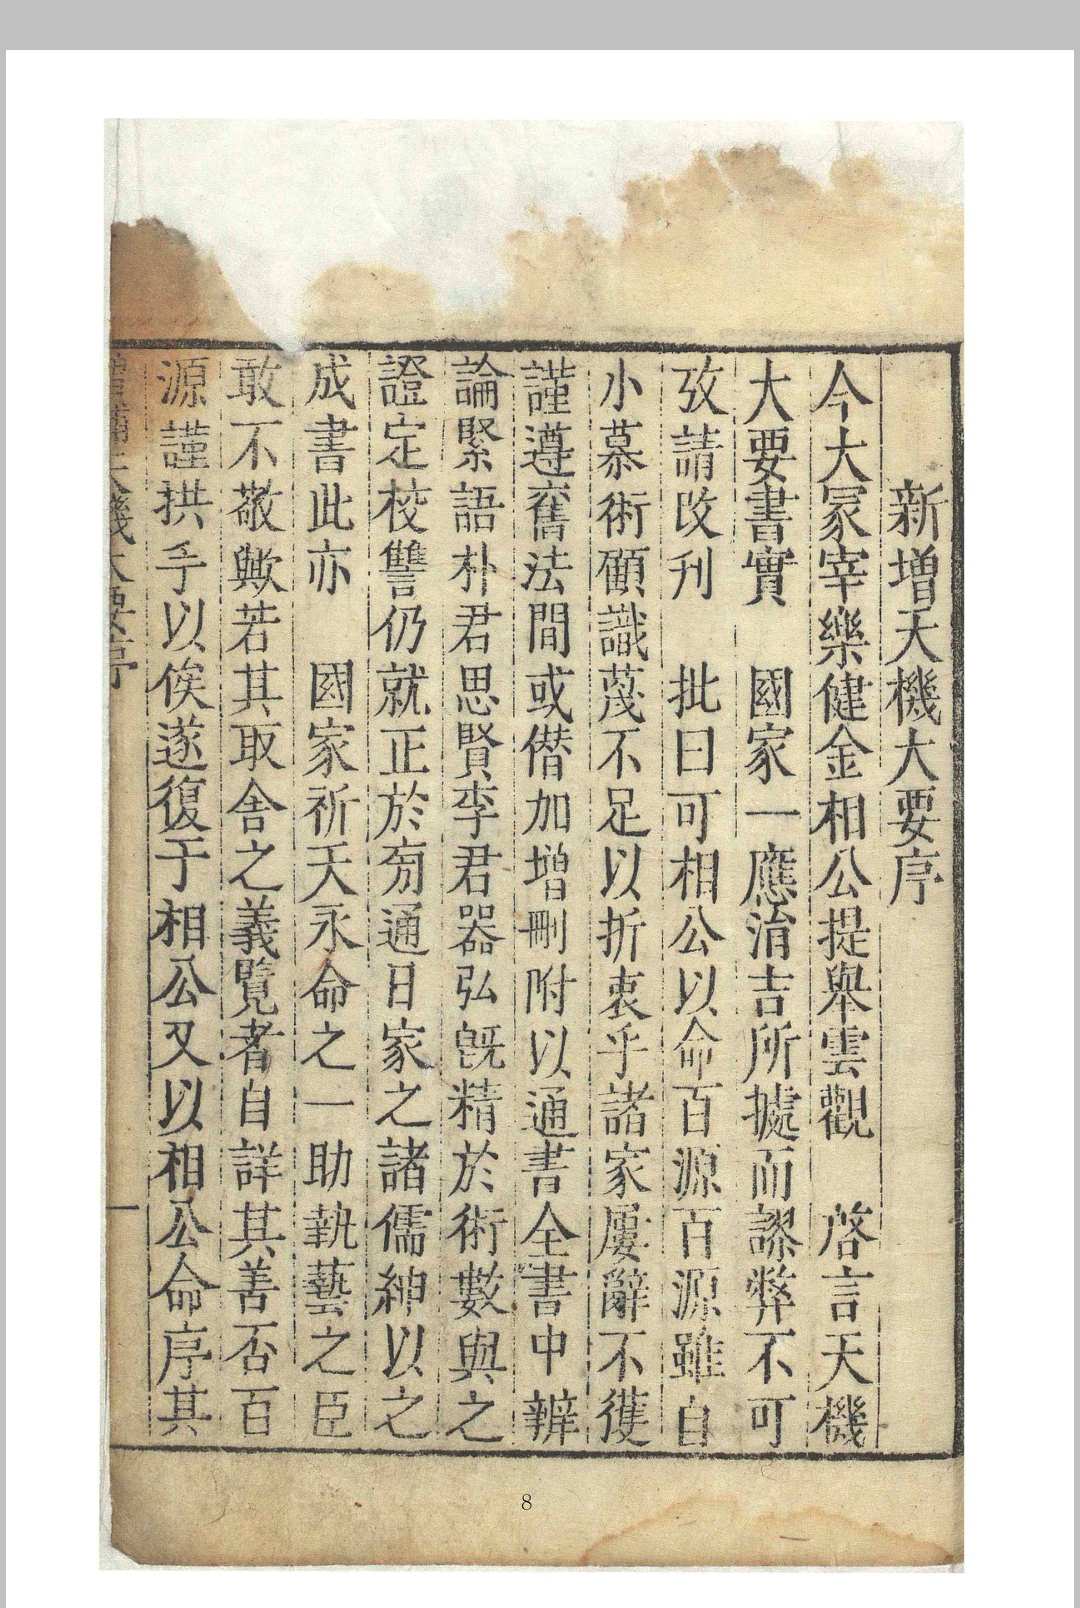 新增天機大要序
今大冢宰樂健金相公提舉雲觀　啓言天機
大要書實　國家一應涓吉所據而謬弊不可
攷請改刊　批曰可相公以命百源百源雖自
小慕術顧識蔑不足以折衷乎諸家屢辭不獲
謹遵舊法間或僭加增刪附以通書全書中辨
論緊語朴君思賢李君器弘旣精於術數與之
證定校讐仍就正於旁通日家之諸儒紳以之
成書此亦　國家祈天永命之一助執藝之臣
敢不敬歟若其取舍之義覽者自詳其善否百
源謹拱手以俟遂復于相公又以相公命序其
增補天機大要序
一
8